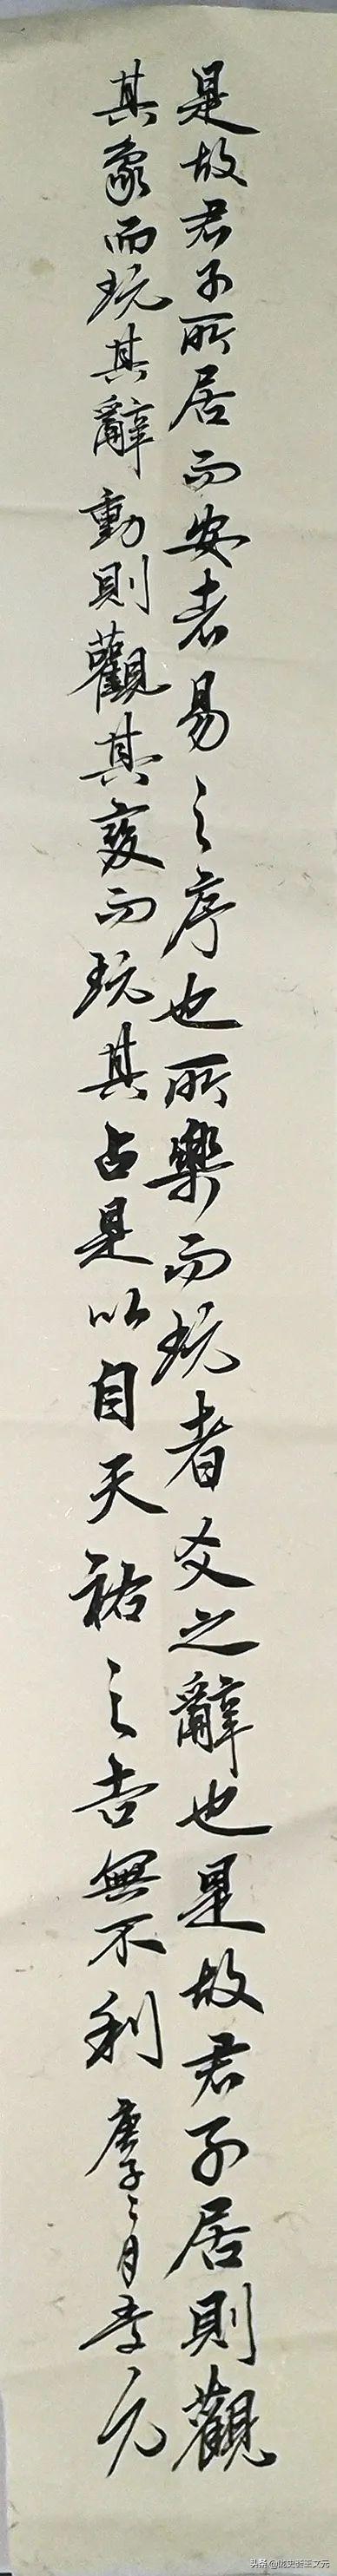 是故君子所居而安者易之序也所樂而玩者爻之辭也是故君子居則觀
其象而玩其辭動則觀其變而玩其占是以自天祐之吉無不利 庚子二月孝元
头条@陇史斋主文元